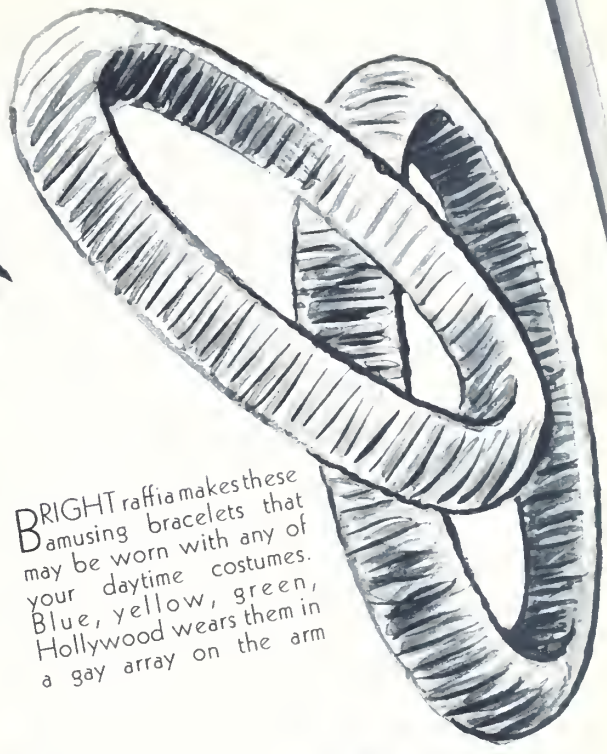 BRIGHT raffia makes these
amusing bracelets that
may be worn with any of
your daytime costumes.
Blue, yellow, green,
Hollywood wears them in
a gay array on the arm